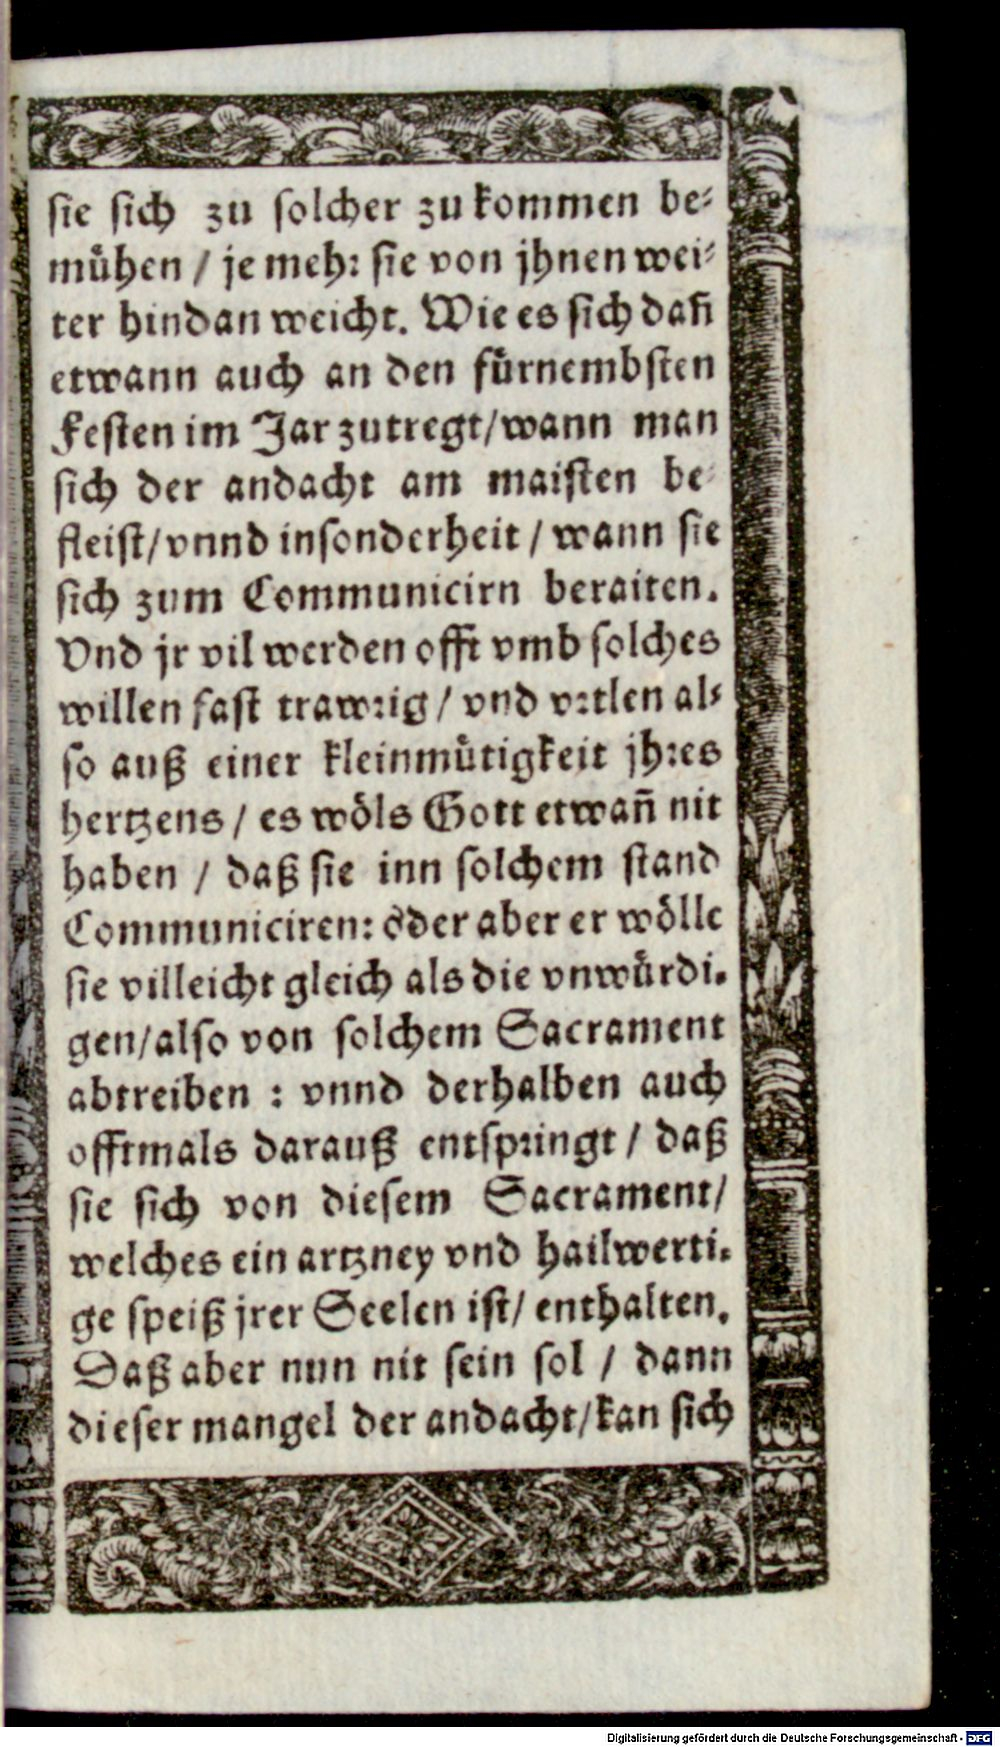 sie sich zu solcher zu kommen be⸗
mühen / je mehr sie von jhnen wei⸗
ter hindan weicht. Wie es sich dañ
etwann auch an den fürnembsten
Festen im Jar zutregt/wann man
sich der andacht am maisten be⸗
fleist/vnnd insonderheit / wann sie
sich zum Communicirn beraiten.
Vnd jr vil werden offt vmb solches
willen fast trawrig / vnd vrtlen al⸗
so auß einer kleinmütigkeit jhres
hertzens / es wöls Gott etwañ nit
haben / daß sie inn solchem stand
Communiciren: oder aber er wölle
sie villeicht gleich als die vnwürdi⸗
gen/also von solchem Sacrament
abtreiben : vnnd derhalben auch
offtmals darauß entspringt / daß
sie sich von diesem Sacrament/
welches ein artzney vnd hailwerti⸗
ge speiß jrer Seelen ist/ enthalten.
Daß aber nun nit sein sol / dann
dieser mangel der andacht/kan sich
Digitalisierung gefördert durch die Deutsche Forschungsgemeinschaft - DFG